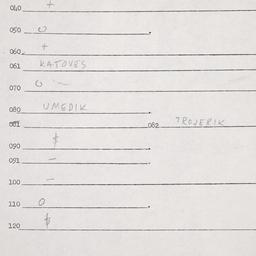 040 +
050 O
060 +
061 KATOVES
070 O ~
080 UMEDIK
081 082 TROJERIK
090 $
091 –
100 –
110 O
120 $